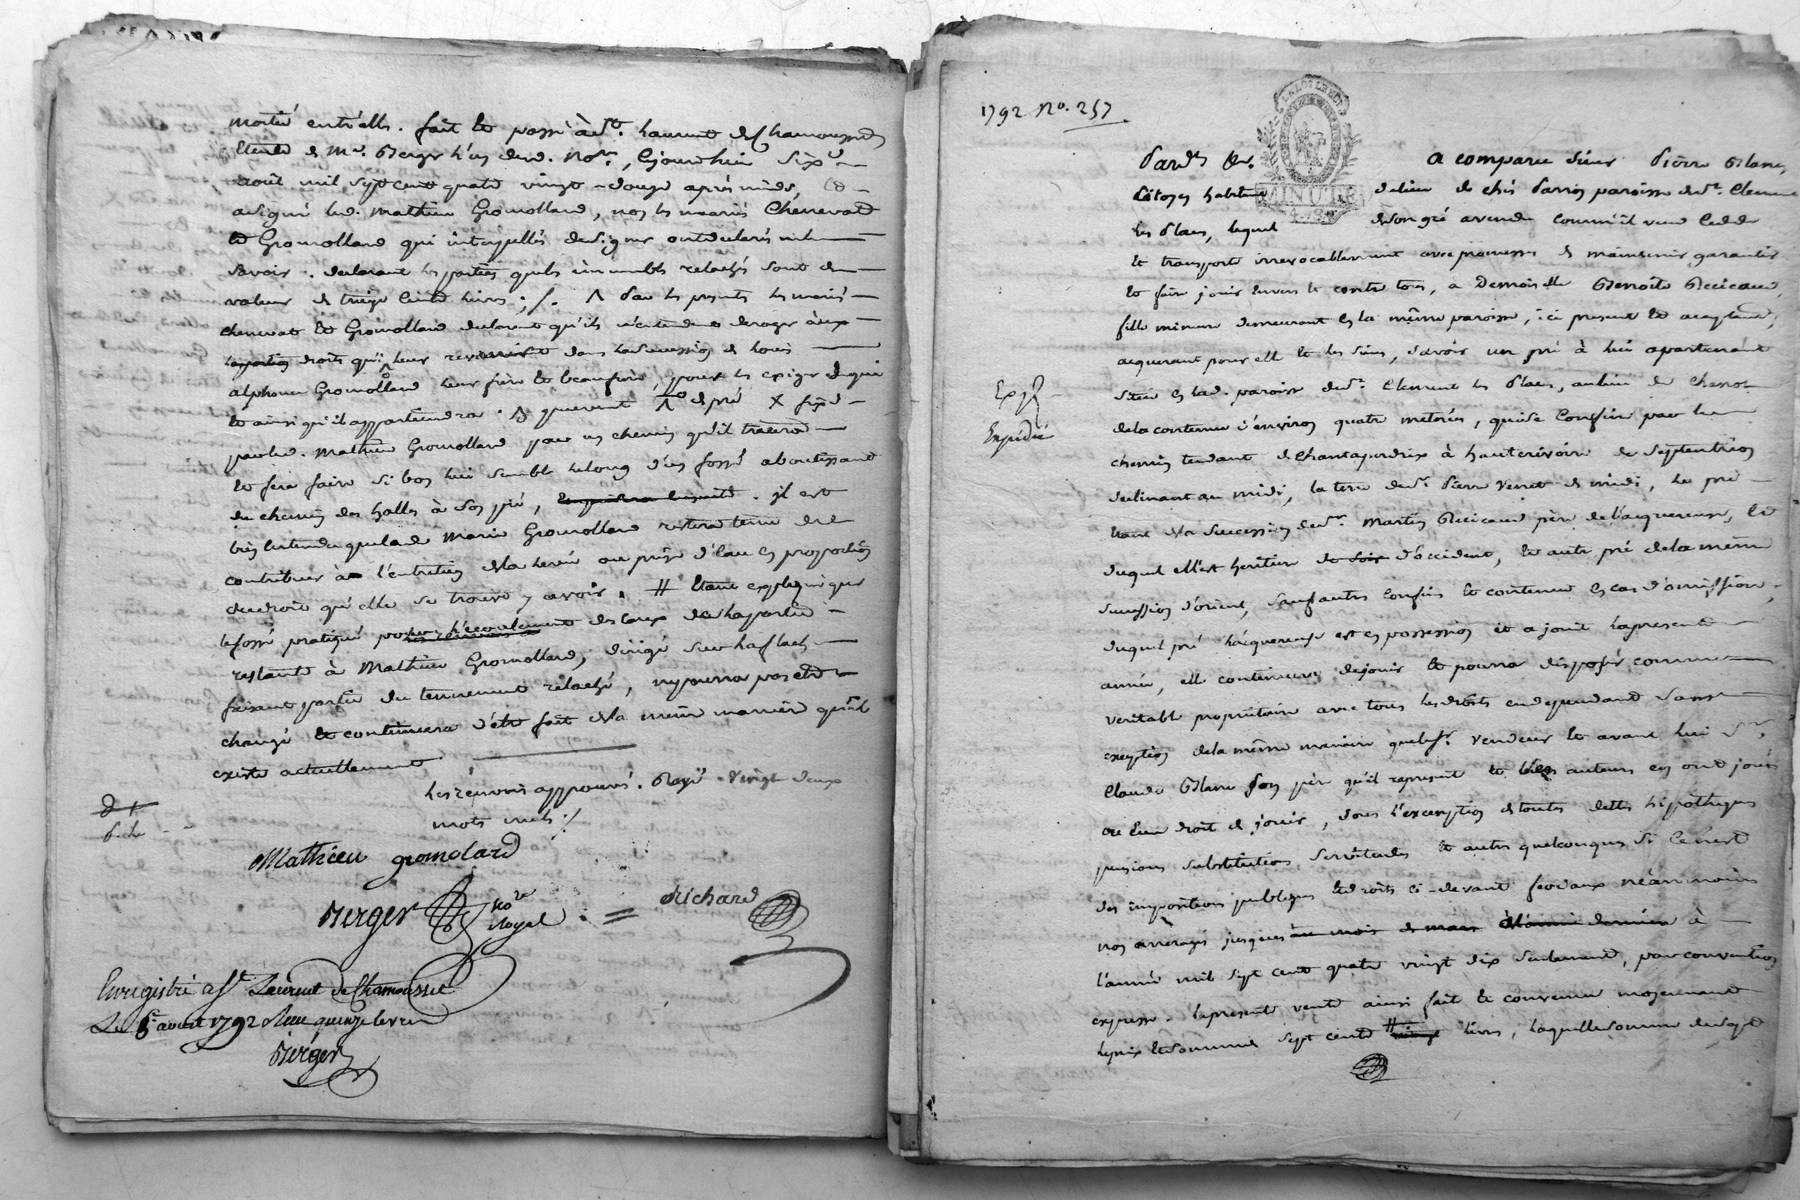 moitié entr'elles. fait et passé à St. Laurent de Chamousset
Etude de Me. Berger l'un desd. Nores, Cejourdhui six
août mil sept cent quatre vingt-douze après midi, et
a signé led. Mathieu Gromollard, non les mariés Chenevat
et Gromollard qui interpellés de signer ont déclaré ne le
savoir. declarant les parties que les immeubles relachés sont de
valeur de treize Cents livres ;/. Λ Par les presentes les mariés
chenevat et Gromollard declarent qu'ils n'entendent deroger aux
droits qui leur reviennent dans la succession de Louis
alphonse Gromollard leur frère et beaufrère, pour les exiger de qui
et ainsi qu'il appartiendra. de pré X fixé
par led. Mathieu Gromollard par un chemin qu'il tracera
et fera faire si bon lui semble le long d'un fossé aboutissant
du chemin des halles à son pré, . il est
bien Entendu que lade Marie Gromollard restera tenue de
contribuer à l'entretien de la levée ou prise d'eau en proportion
du droit qu'elle se trouve y avoir. # Etant expliqué que
le fossé pratiqué pour l'écoulement des Eaux de la partie
restante à Mathieu Gromollard, dirigé sur
faisant partie du tennement relaché, ne pourra pas etre
changé et continuera d'être fait de la même manière qu'il
existe actuellement.
les renvois approuvés. Rayé vingt deux
mots nuls ;/
Mathieu gromolard
Berger Nore Royal
Richard
Enregistré à St. Laurent de Chamousset
Le 6 aout 1792 Reçu quinze
Berger
1792 No. 257
Pardt &c. a comparu sieur Pierre Blanc,
Citoyen habitant du lieu de chés Parrin paroisse de St. Clement
les Places, lequel de son gré a vendu comme il vend Cedde
et transporte irrevocablement avec promesse de maintenir garantir
et faire jouir Envers et contre tous, a Demoiselle Benoite
fille mineure demeurant en la même paroisse, ici presente et acceptante,
acquerant pour elle et les siens, savoir un pré à lui apartenant
situé en lad. paroisse de St. Clement les Places, au lieu de
de la contenue d'environ quatre metérées, qui se Confine par le
Expédié
chemin tendant de Chantaperdrix à hauterivoire de septentrion
declinant au midi, la terre de sr. Pierre Venet de midi, le pré
Etant de la succession de sr. Martin père de l'acquereuse, Et
duquel elle est heritiere d'occident, et autre pré de la même
succession d'orient, sauf autres Confins et contenue en cas d'omission,
duquel pré l'acquereuse est en possession et a jouit la presente
année, elle continuera dejouir et pourra disposer comme
veritable propriétaire avec tous les droits en dependant sans
exception de la même manière que led sr. vendeur et avant lui sr.
Claude Blanc son père qu'il represente et leurs auteurs en ont joui
ou Eu droit de jouir, sous l'exemption de toutes dettes hipothèques
pensions substitutions servitudes et autres quelconques si Ce n'est
des impositions publiques Et droits ci-devant feodaux néanmoins
non arreragés jusques au mois de mars de l'année derniere à
l'année mil sept cent quatre vingt dix seulement, par convention
expresse. la presente vente ainsi faite et convenue moyennant
le prix Et somme de sept cents # livres, laquelle somme de sept